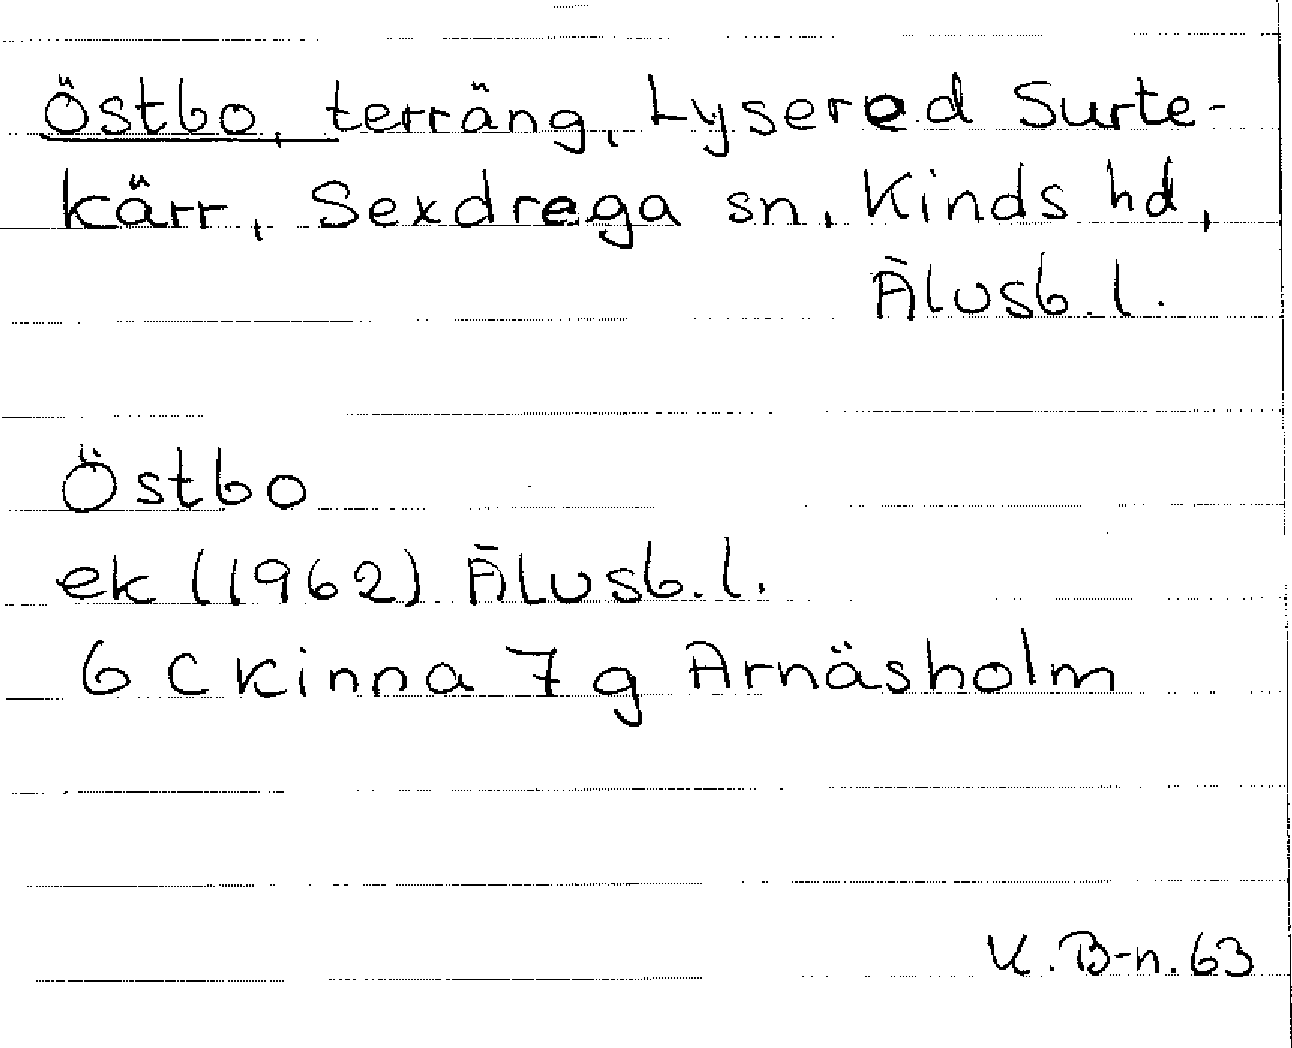 Östbo, terräng, Lysered Surte-
kärr, Sexdrega sn, Kinds hd,
Älvsb. l.
Östbo
ek (1962) Älvsb. l.
6 C Kinna 7 g Arnäsholm
K. B-n. 63